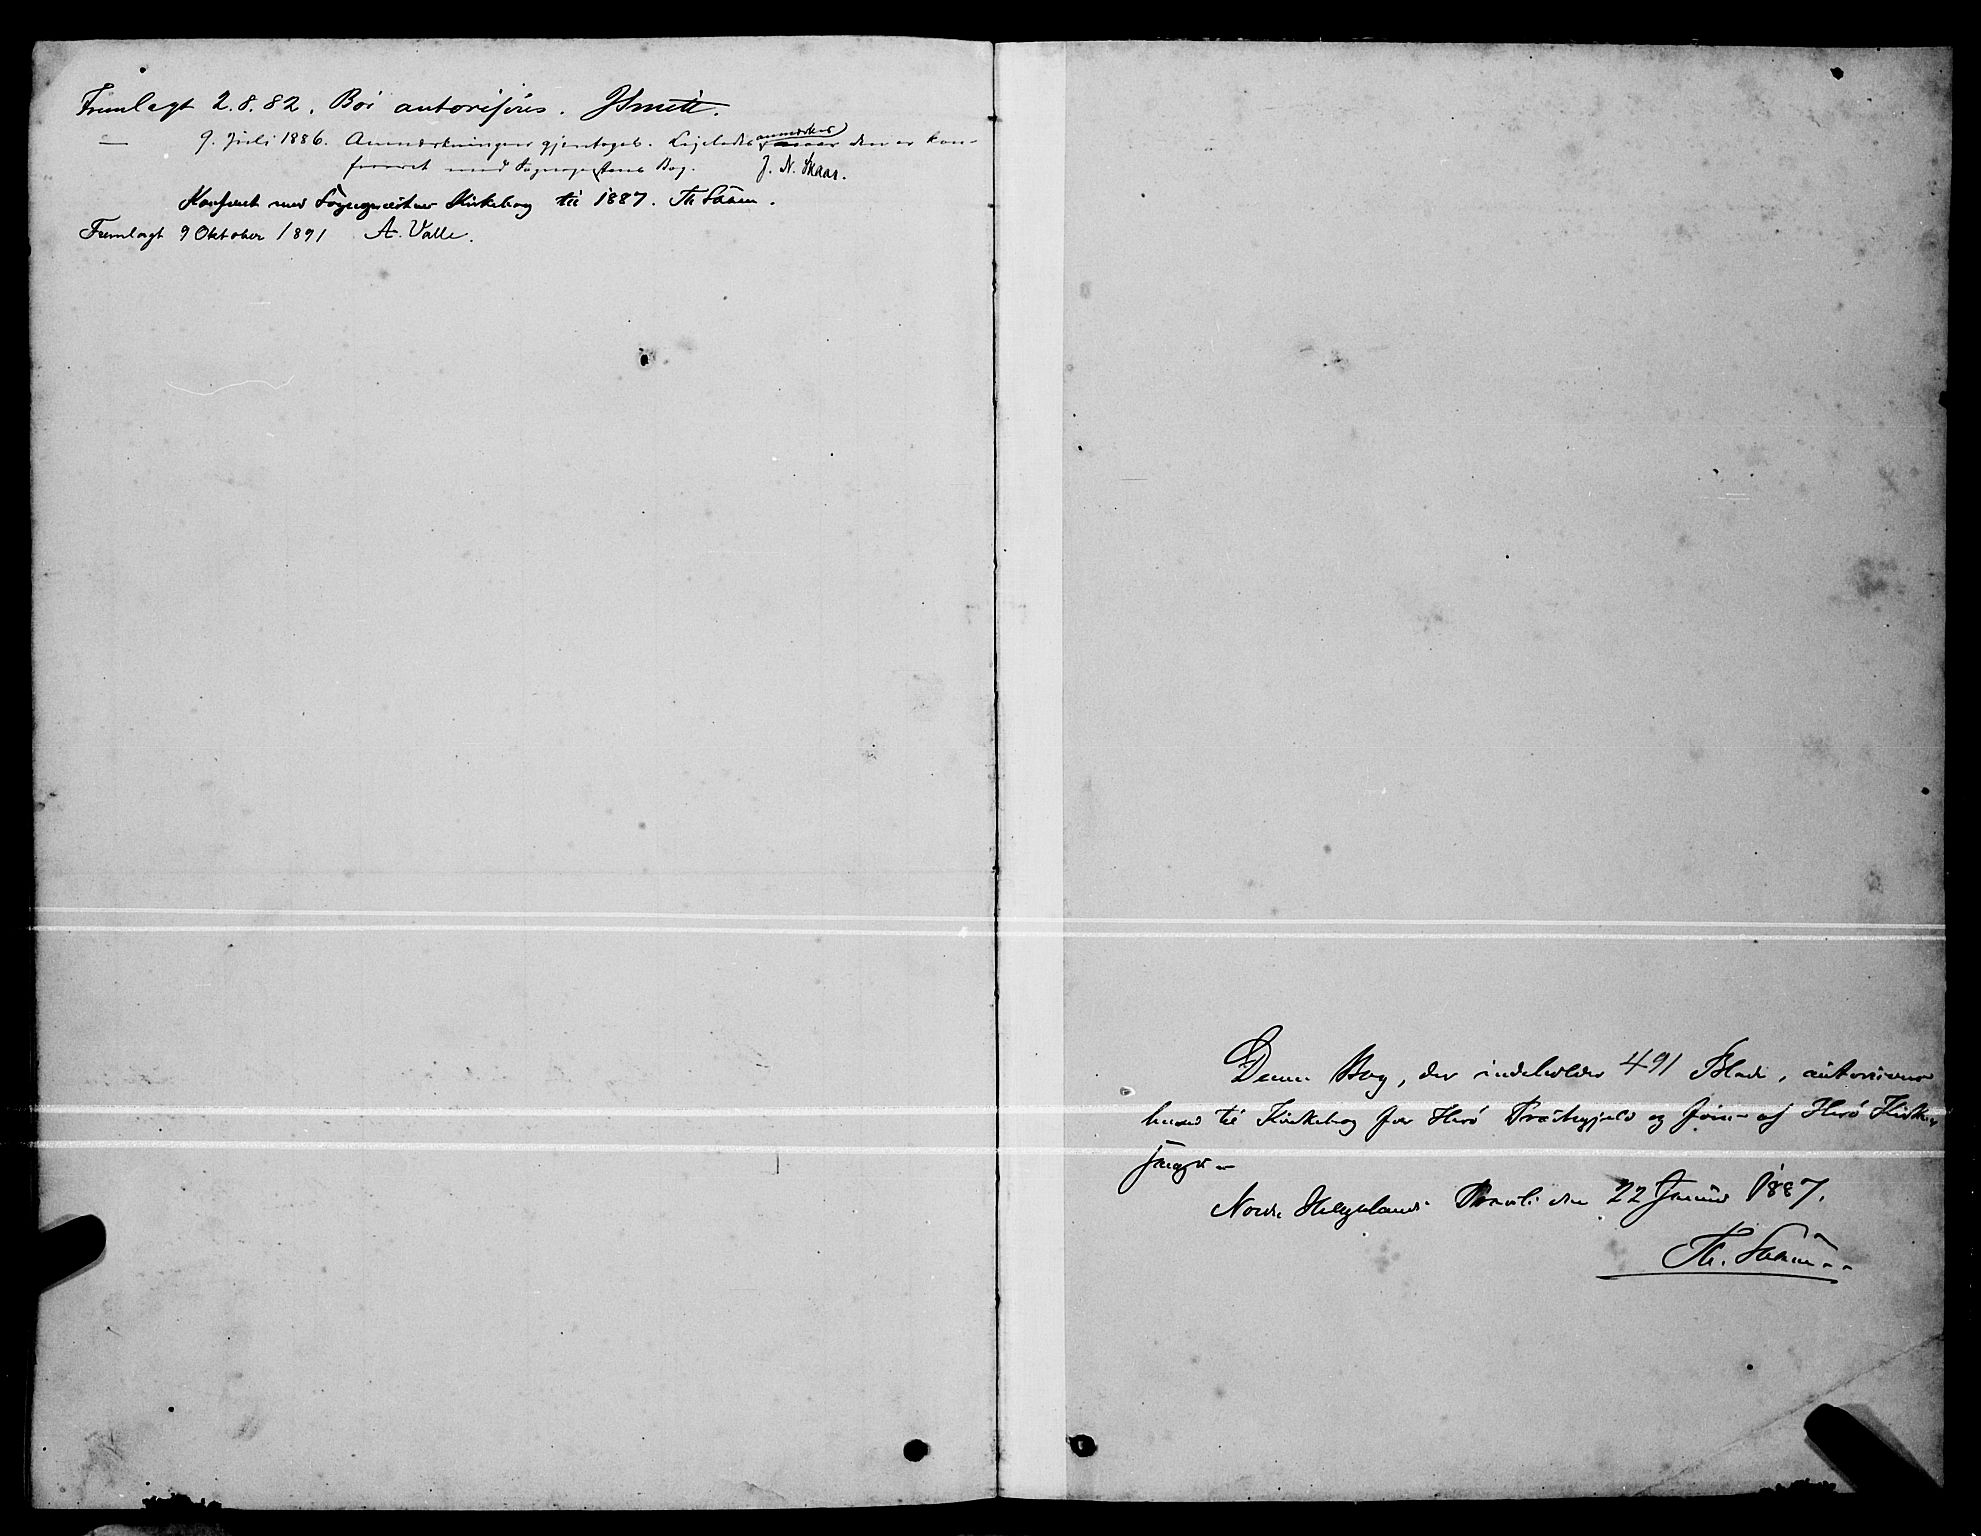 Fremlagt 2.8.82. Bør autoriseres. JSmitt.
— 9. Juli 1886. Anmærkningen gjentages. Ligeledes anmærkes, den er kon-
fereret med Sognepræstens Bog. J. N. Skaar.
Konfereret med Sognepræstens Kirkebog til 1887. Th.
Fremlagt 9 Oktober 1891 A. Valle.
Denne Bog, der indeholder 491 Blade, autoriseres
herved til Kirkebog for Herø Præstegjeld og føres af Herø Kirke-
sanger
Nordre Helgelands Provsti den 22 Januar 1887.
Th.